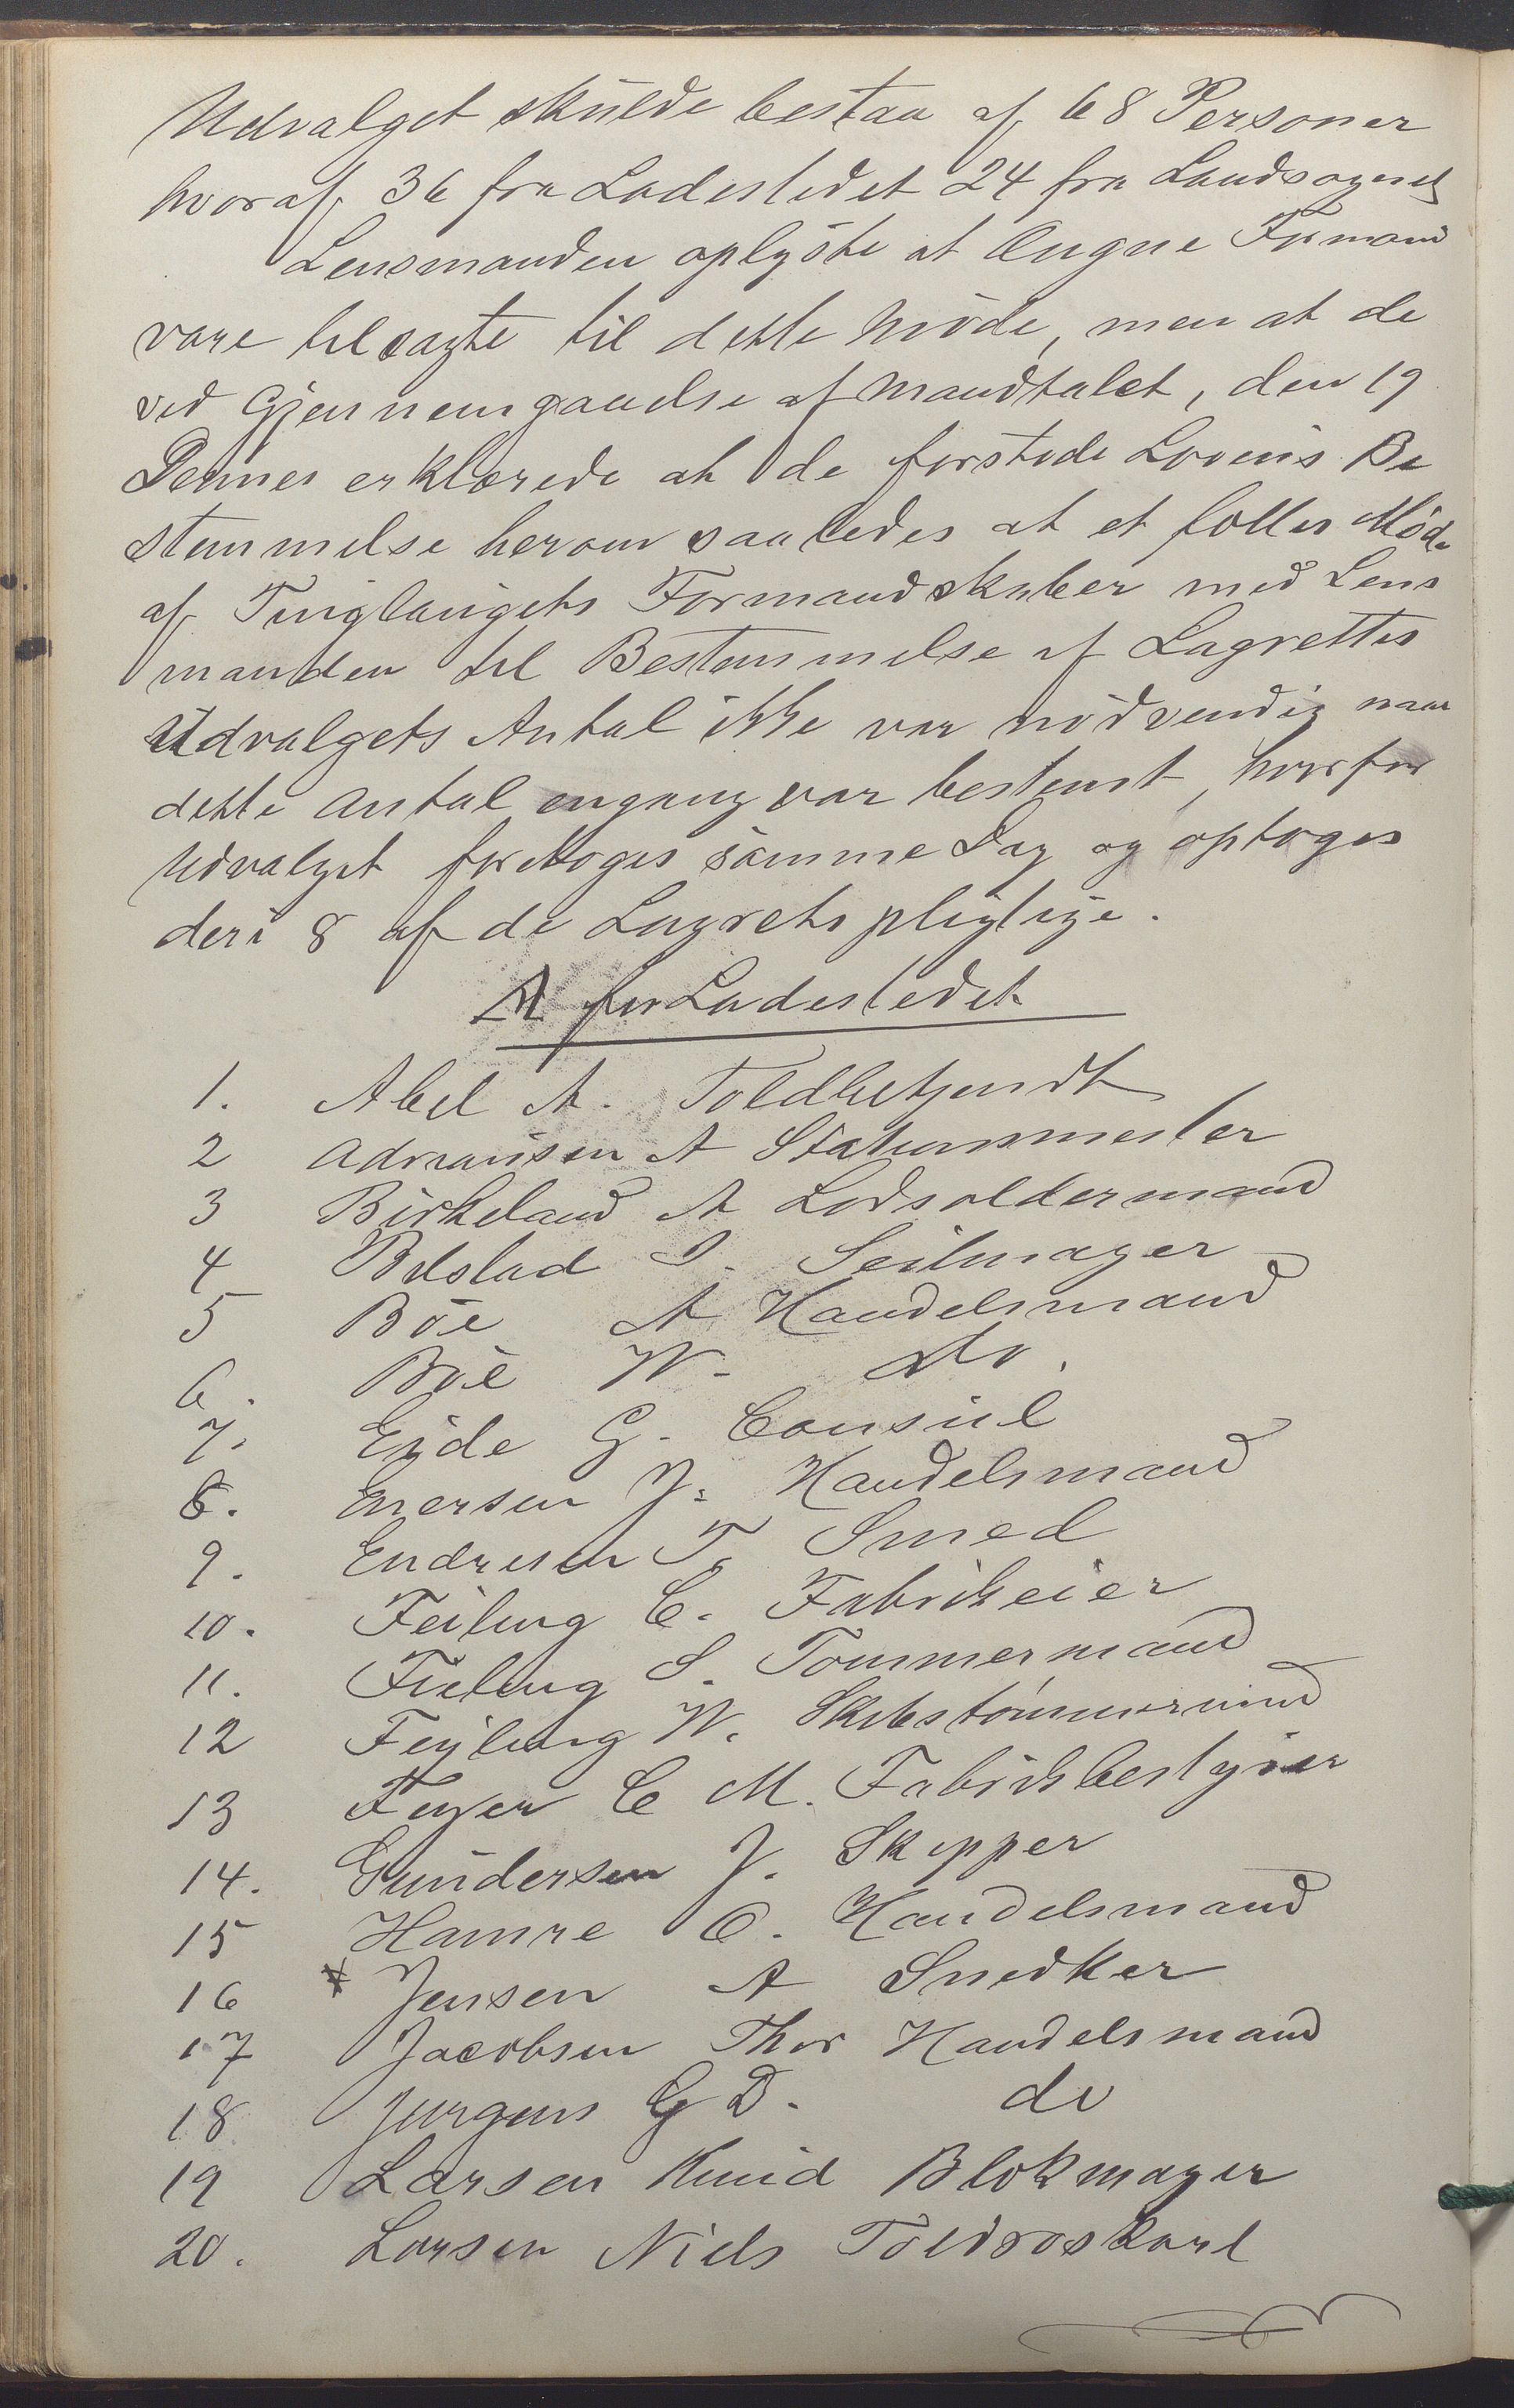 Udvalget skulde bestaa af 68 Personer
hvoraf 36 fra Ladestedet 24 fra Landsognet
Lensmanden oplyste at Augne Formænd
vare tilsagte til dette Møde, men at de
ved Gjennemgaaelse af Mandtalet, den 19
Dennes erklærede at de forstode Lovens Be
stemmelse herom saaledes at et fælles Møde
af Tinglaugets Formandskaber med Lens
manden til Bestemmelse af Lagrettes
Udvalgets Antal ikke var nødvendig naar
dette Antal engang var bestemt, hvorfor
Udvalget foretoges samme Dag og optoges
deri 8 af de Lagretspligtige.
A for Ladestedet
1. Abel A. Toldbetjendt
2 Adriansen A Stationsmester
3 Birkeland A Lodsoldermand
4 Bilstad I. Seilmager
5 Böe A Handelsmand
6. Böe W. do.
7. Eide G. Consul
8. Eversen J. Handelsmand
9. Endresen T. Smed
10. Feiling C. Fabrikeier
11. Feiling S. Tømmermand
12 Feyling W. Skibstømmermand
13 Feyer C M. Fabrikbestyrer
14. Gundersen J. Skipper
15 Hamre O. Handelsmand
16 * Jensen A Snedker
17 Jacobsen Thor Handelsmand
18 Jurgens G D. do
19 Larsen Knud Blokmager
20. Larsen Niels Toldroskarl